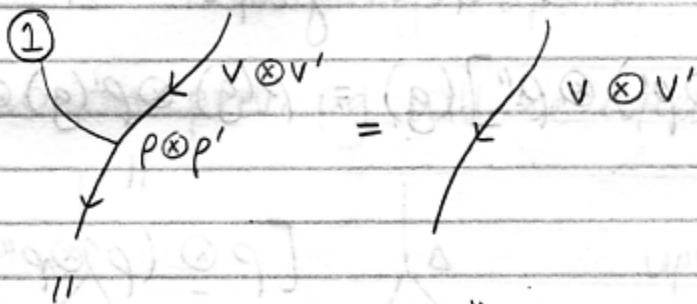 ①
V ⊗ V'
ρ⊗ρ'
=
V ⊗ V'
||